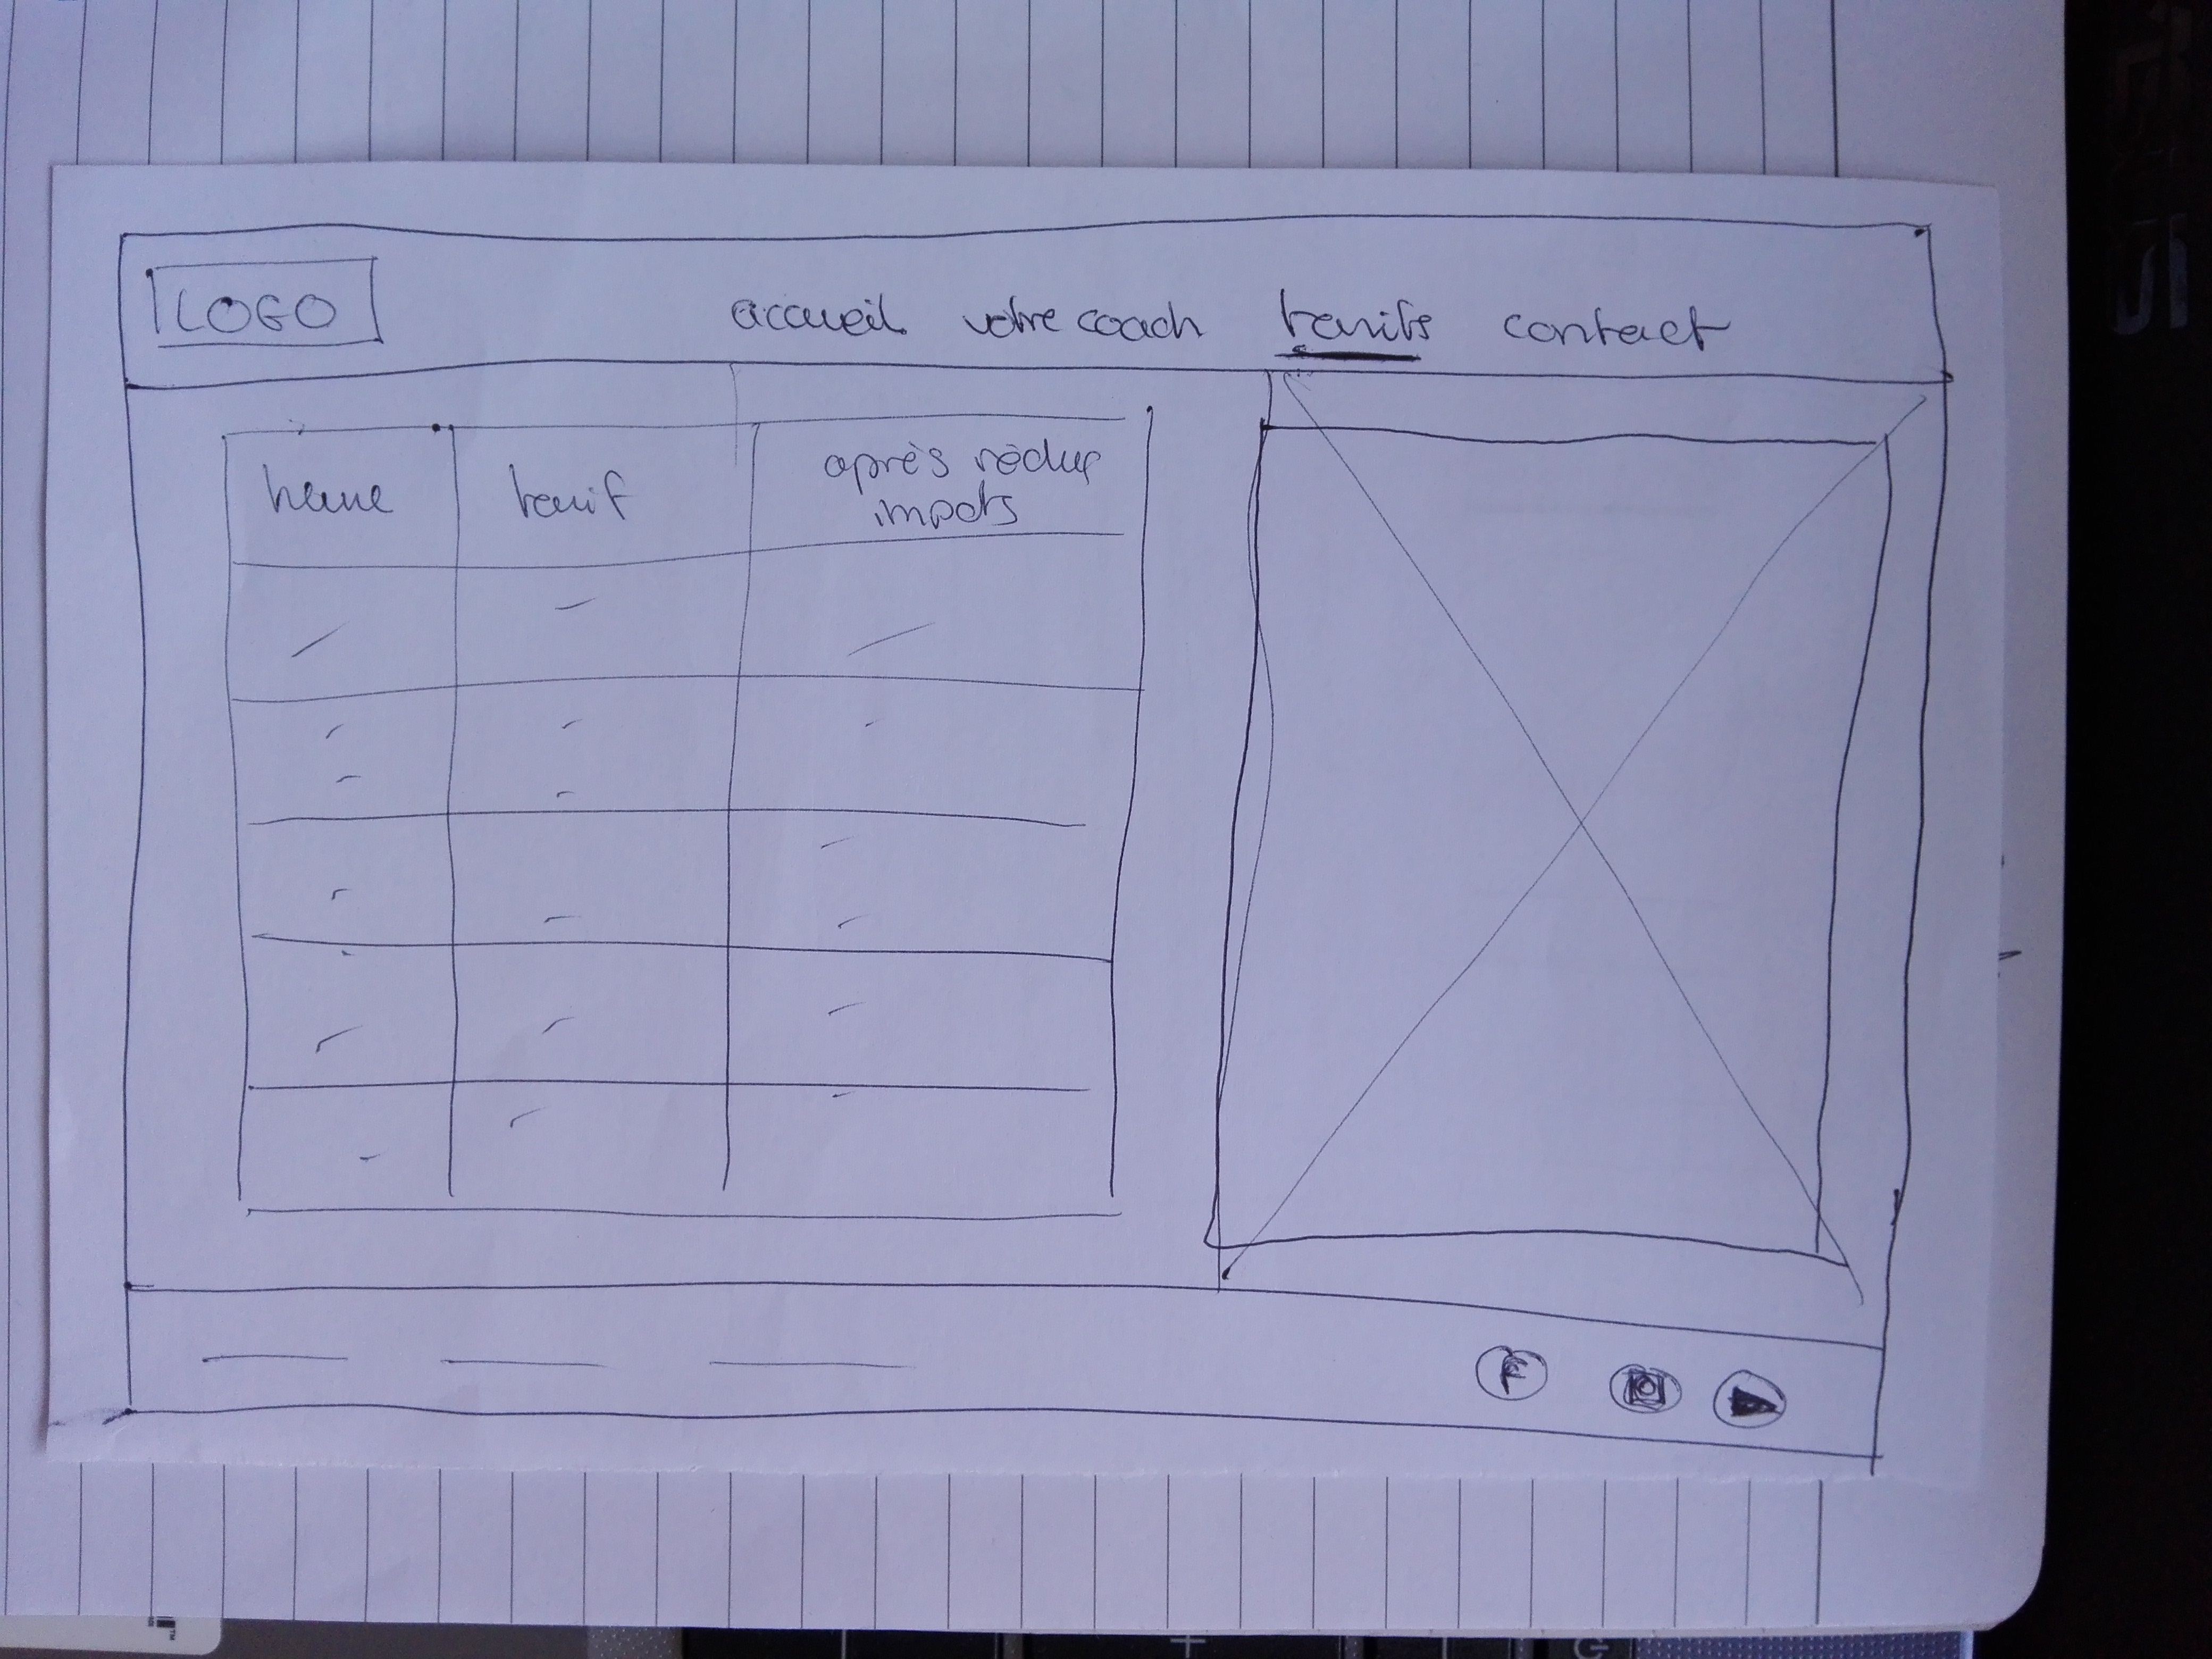 LOGO
accueil votre coach tarifs contact
heure tarif après réduc
impots
F